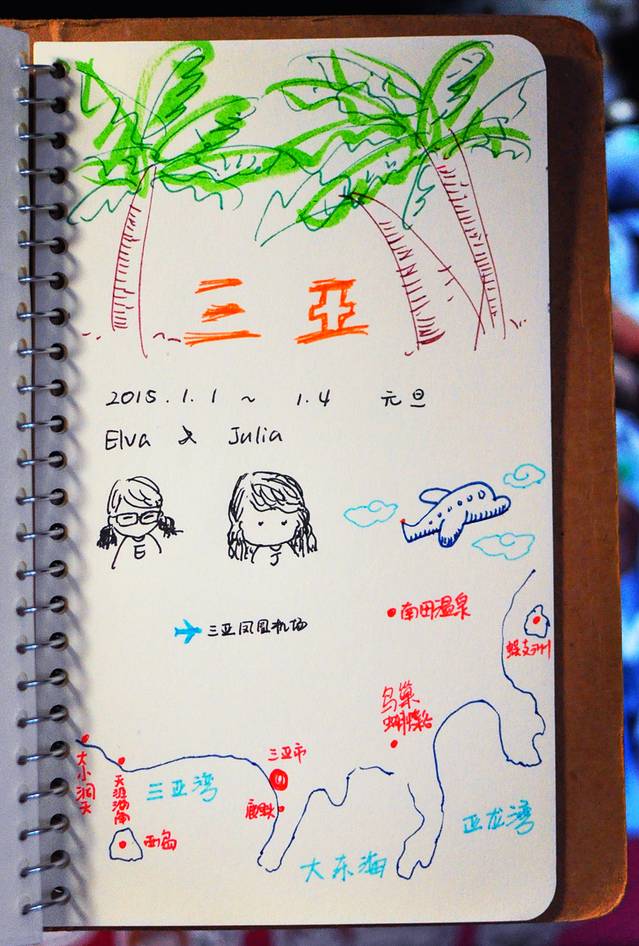 三亚
2015.1.1 ~ 1.4 元旦
Elva & Julia
E
J
南田温泉
三亚凤凰机场
蜈支洲
鸟巢
蝴蝶谷
三亚市
大小洞天
天涯海角
三亚湾
鹿回头
西岛
亚龙湾
大东海